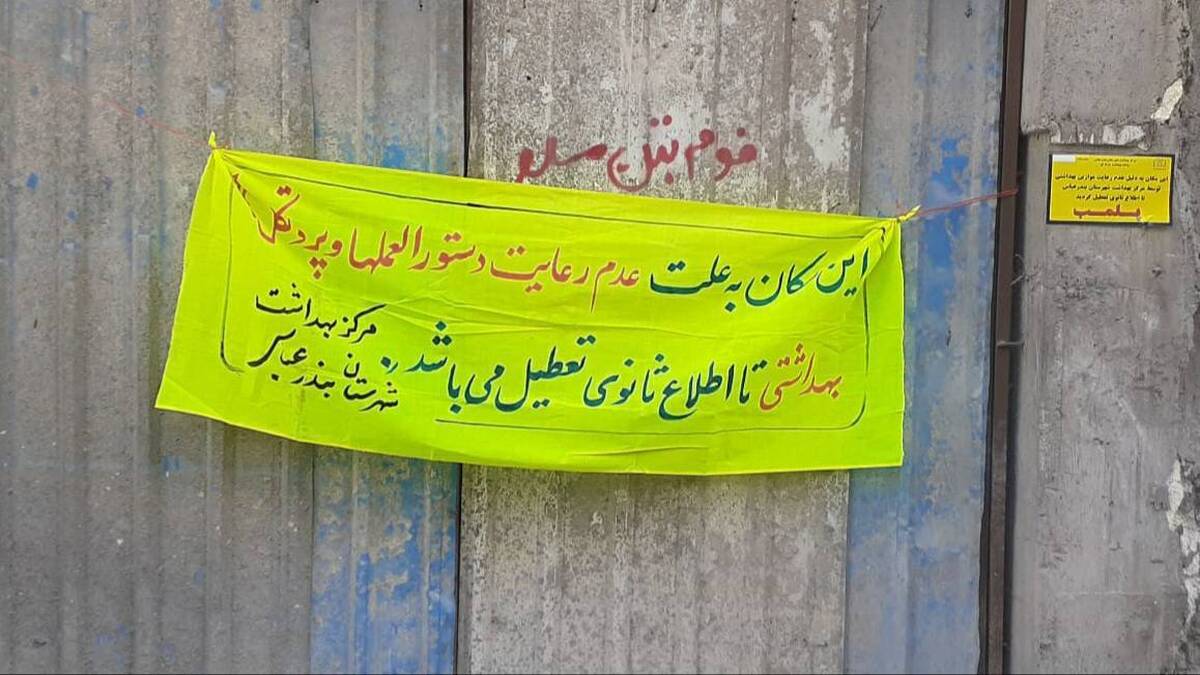 فوم بتن سلو
این مکان به علت عدم رعایت دستورالعملها و پروتکل
بهداشتی تا اطلاع ثانوی تعطیل می باشد.
مرکز بهداشت
شهرستان بندرعباس
این مکان به دلیل عدم رعایت موازین بهداشتی
توسط مرکز بهداشت شهرستان بندرعباس
تا اطلاع ثانوی تعطیل گردید
پلمب